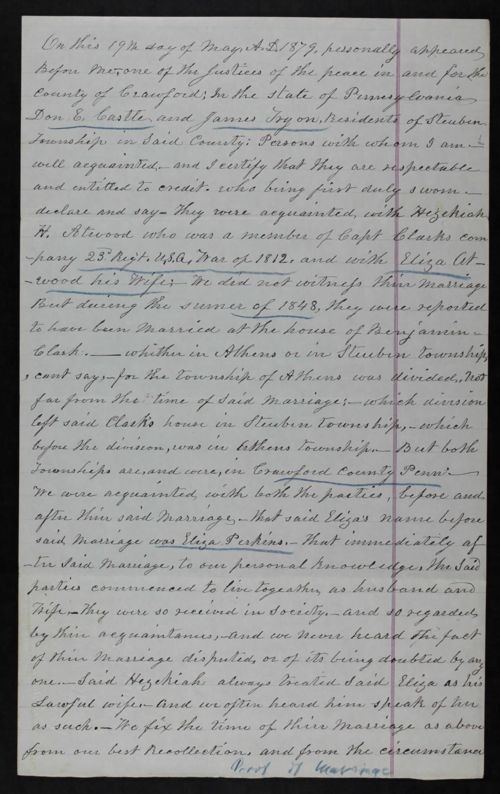 On this 19th day of May, A.D. 1879, personally appeared
before me, one of the Justices of the peace in and for the
County of Crawford; In the state of Pennsylvania
Don E. Castle and James Tryon, Residents of Steuben
Township in Said County: Persons with whom I am
well acquainted, and I certify that they are respectable
and entitled to credit. who being first duly sworn
declare and say — They were acquainted, with Hezekiah
H. Atwood who was a member of Capt Clarks com-
pany 23d Regt. U.S.A., War of 1812. and with Eliza At-
-wood his Wife; We did not witness thier marriage
But during the sumer of 1848, they were reported
to have been Married at the house of Benjamin
Clark. — whither in Athens or in Steuben township,
cant say, — for the township of Athens was divided, not
far from the time of Said Marriage; — which division
left said Clark's house in Steuben township, — which
before the division, was in Athens township. — But both
Townships are, and were, in Crawford County Penn. —
We were acquainted with both the parties, before and
after thier said Marriage, — that said Eliza's name before
said Marriage was Eliza Perkins. — That immediately af-
ter Said Marriage, to our personal Knowledge, the Said
parties commenced to live together, as husband and
Wife, — they were so received in Society. — and so regarded,
by thier acquaintances, — and we never heard the fact
of thier Marriage disputed, or of its being doubted by any
one. — Said Hezekiah always treated Said Eliza as his
Lawful wife. — And we often heard him speak of her
as such. — We fix the time of thier Marriage as above
from our best Recollection, and from the circumstance
Proof of Marriage